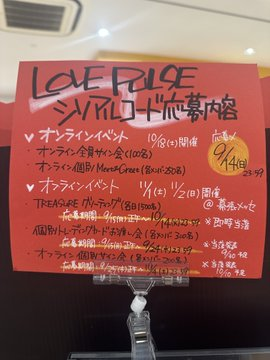 LOVE PULSE
シリアルコード応募内容
♥ オンラインイベント 10/18(土)開催
応募〆
9/14(日)
23:59
・オンライン全員サイン会(100名)
・オンライン個別Meet&Greet(各メンバー250名)
♥ オンラインイベント 11/1(土) 11/2(日)開催
@幕張メッセ
・TREASURE グリーティング(各日500名)
応募期間:
・個別トレーディングカードお渡し会(各メンバー300名)
応募期間: 9/24(水)23:59
・オンライン個別サイン会(各メンバー200名)
応募期間:
※即時当落
※当落発表
※当落発表